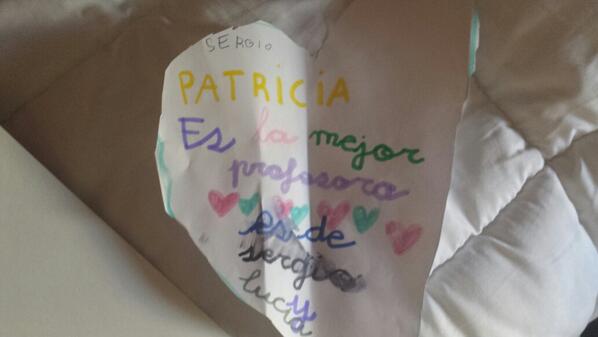 SERGIO
PATRICIA
Es la mejor
profesora
es de
sergio
y
lucia